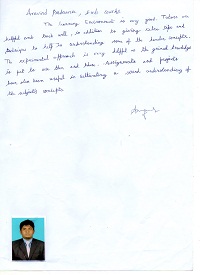 Aravind
The learning Environment is very good. Tutors are
helpful and teach well, in addition to giving extra tips and
techniques to help in understanding some of the harder concepts.
The experimental approach is very helpful as the gained knowledge
is put to use then and there. Assignments and projects
have also been useful in cultivating a sound understanding of
the subject's concepts.